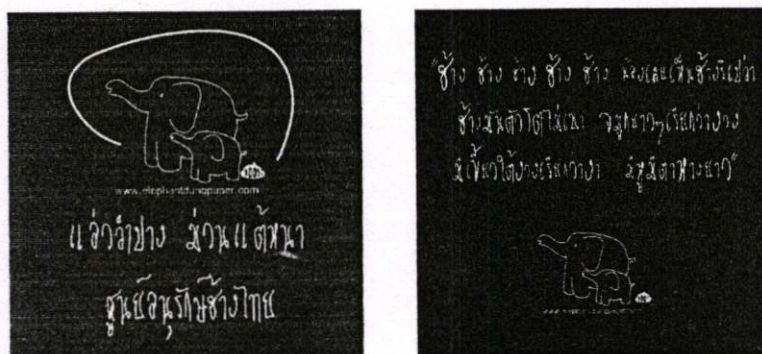 www.elephantdungpaper.com
แอ่วลำปาง ม่วนแต้หนา
ศูนย์อนุรักษ์ช้างไทย
"ช้าง ช้าง ช้าง ช้าง ช้าง น้องเคยเห็นช้างรึเปล่า
ช้างมันตัวโตไม่เบา จมูกยาวๆเรียกว่างวง
มีเขี้ยวใต้งวงเรียกว่างา มีหูมีตาหางยาว"